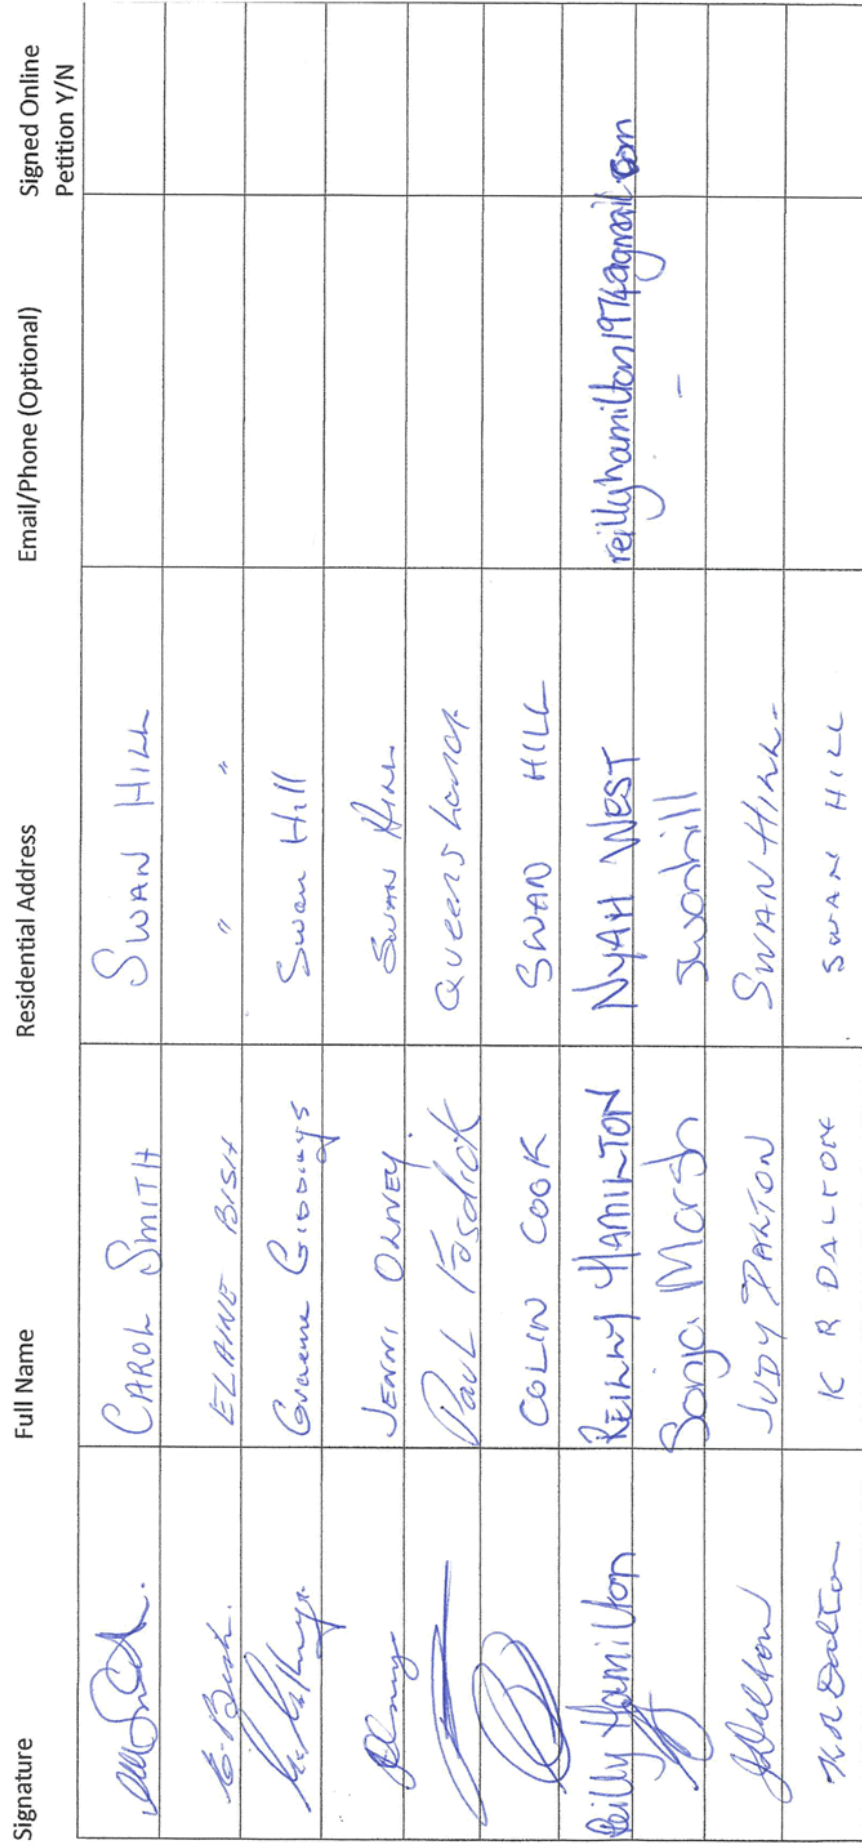 Signature Full Name Residential Address Email/Phone (Optional) Signed Online Petition Y/N
CAROL SMITH SWAN HILL
E. Bish. ELAINE BISH " "
Graeme Giddings Swan Hill
JENNI OLIVEY. SWAN HILL
PAUL Fosdick Queensland
COLIN COOK SWAN HILL
Reilly Hamilton REILLY HAMILTON NYAH WEST reillyhamilton1974@gmail.com
Sonja Marsh Swanhill -
JDalton JUDY DALTON SWAN HILL-
K R Dalton K R DALTON SWAN HILL